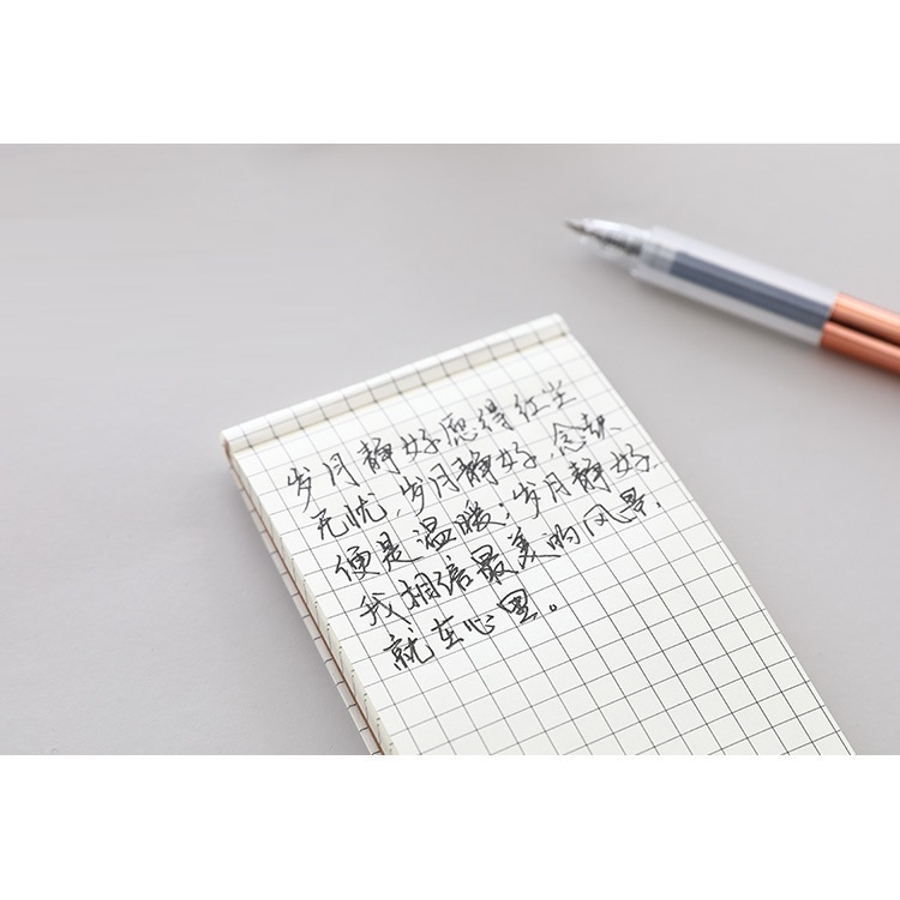 岁月静好愿得红尘
无忧,岁月静好,念起
便是温暖;岁月静好,
我相信最美的风景,
就在心里。